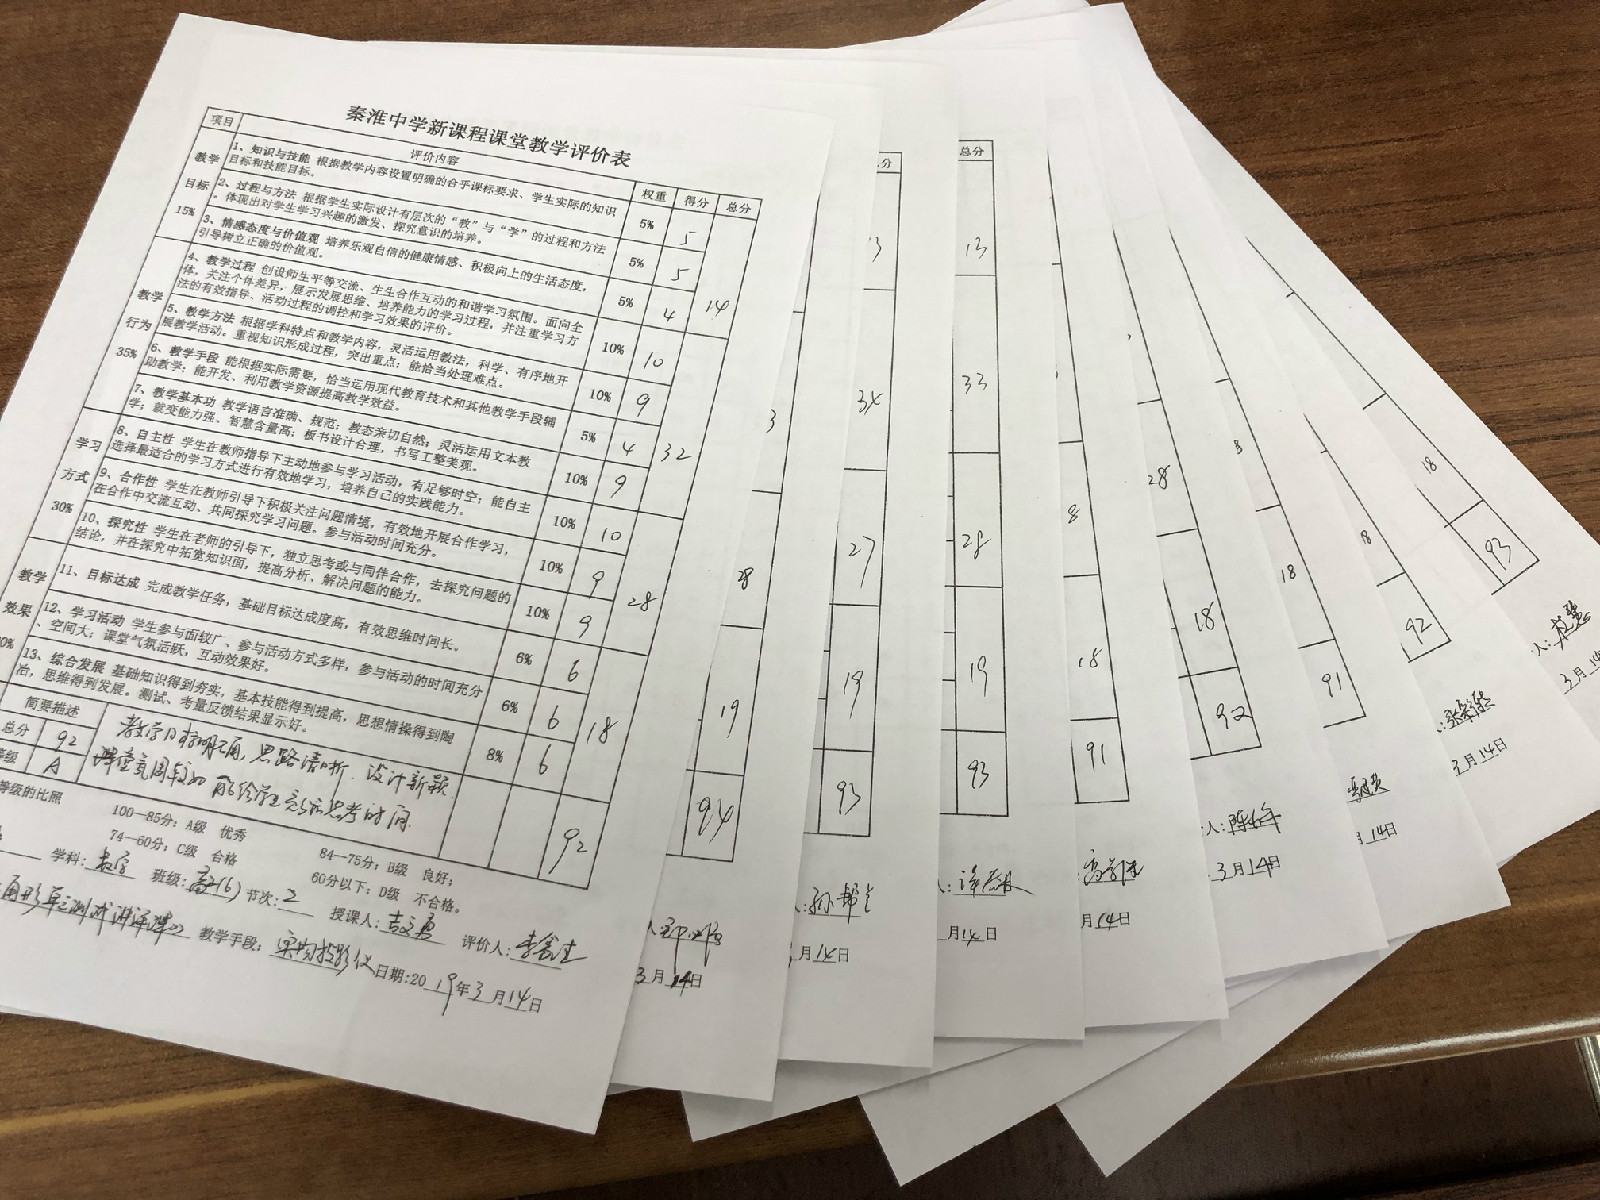 秦淮中学新课程课堂教学评价表
项目 评价内容 权重 得分 总分
教学目标 15%
1、知识与技能 根据教学内容设置明确的合乎课标要求、学生实际的知识
目标和技能目标。 5% 5
2、过程与方法 根据学生实际设计有层次的“教”与“学”的过程和方法
，体现出对学生学习兴趣的激发、探究意识的培养。 5% 5
3、情感态度与价值观 培养乐观自信的健康情感、积极向上的生活态度，
引导树立正确的价值观。 5% 4
14
教学行为 35%
4、教学过程 创设师生平等交流、生生合作互动的和谐学习氛围。面向全
体，关注个体差异，展示发展思维、培养能力的学习过程，并注重学习方
法的有效指导、活动过程的调控和学习效果的评价。 10% 10
5、教学方法 根据学科特点和教学内容，灵活运用教法，科学、有序地开
展教学活动。重视知识形成过程，突出重点；能恰当处理难点。 10% 9
6、教学手段 能根据实际需要，恰当运用现代教育技术和其他教学手段辅
助教学；能开发、利用教学资源提高教学效益。 5% 4
7、教学基本功 教学语言准确、规范；教态亲切自然；灵活运用文本教
学；应变能力强、智慧含量高；板书设计合理，书写工整美观。 10% 9
32
学习方式 30%
8、自主性 学生在教师指导下主动地参与学习活动，有足够时空；能自主
选择最适合的学习方式进行有效地学习，培养自己的实践能力。 10% 10
9、合作性 学生在教师引导下积极关注问题情境，有效地开展合作学习，
在合作中交流互动、共同探究学习问题，参与活动时间充分。 10% 9
10、探究性 学生在老师的引导下，独立思考或与同伴合作，去探究问题的
结论，并在探究中拓宽知识面，提高分析、解决问题的能力。 10% 9
28
教学效果 0%
11、目标达成 完成教学任务，基础目标达成度高，有效思维时间长。 6% 6
12、学习活动 学生参与面较广、参与活动方式多样，参与活动的时间充分
、空间大；课堂气氛活跃，互动效果好。 6% 6
13、综合发展 基础知识得到夯实，基本技能得到提高，思想情操得到陶
冶，思维得到发展。测试、考量反馈结果显示好。 8% 6
18
简要描述
教学目标明确，思路清晰，设计新颖
课堂氛围较好 能给学生充分思考时间.
总分 92
等级 A
92
等级的比照
100—85分：A级 优秀 84—75分：B级 良好；
74—60分：C级 合格 60分以下：D级 不合格。
学科：数学 班级：高二(6) 节次：2 授课人：吉文勇 评价人：李金生
角形单元测试讲评 教学手段：实物投影仪 日期：2019年3月14日
3
28
19
94
3月14日
分
13
34
27
19
93
孙
月14日
总分
13
33
28
19
93
月14日
8
18
91
月14日
28
18
92
人：陈
3月14日
8
18
91
月14日
8
92
3月14日
18
93
人：
3月14